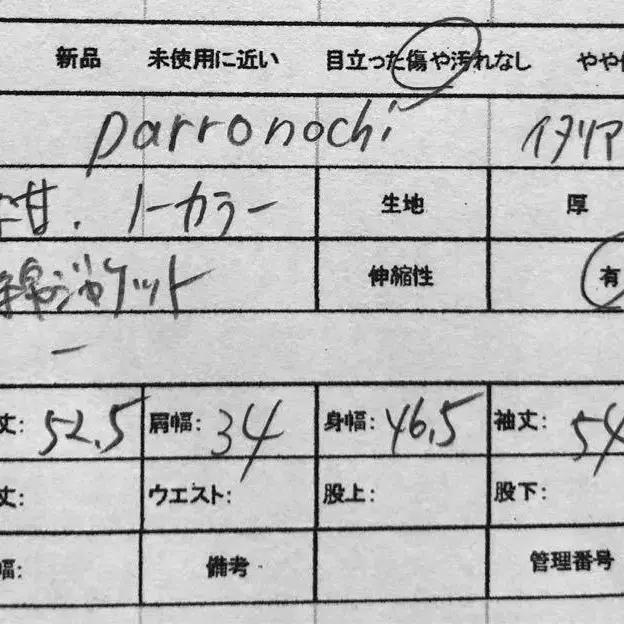 新品 未使用に近い 目立った傷や汚れなし やや
parronochi イタリア
甘. ノーカラー 生地 厚
綿のジャケット 伸縮性 有
ー
丈: 52.5 肩幅: 34 身幅: 46.5 袖丈: 54
丈: ウエスト: 股上: 股下:
幅: 備考 管理番号